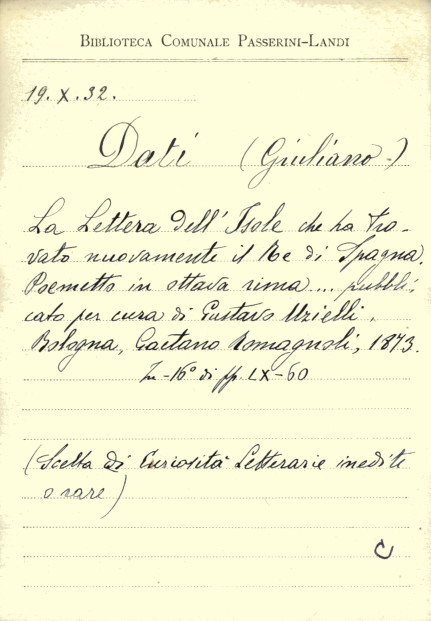 BIBLIOTECA COMUNALE PASSERINI-LANDI
19. X. 32.
Dati (Giuliano -)
La Lettera dell' Isole che ha tro-
vato nuovamente il Re di Spagna.
Poemetto in ottava rima ... pubbli-
cato per cura di Gustavo Uzielli.
Bologna, Gaetano Romagnoli, 1873.
In-16° di pp. LX-60
(Scelta di Curiosità Letterarie inedite
o rare)
C